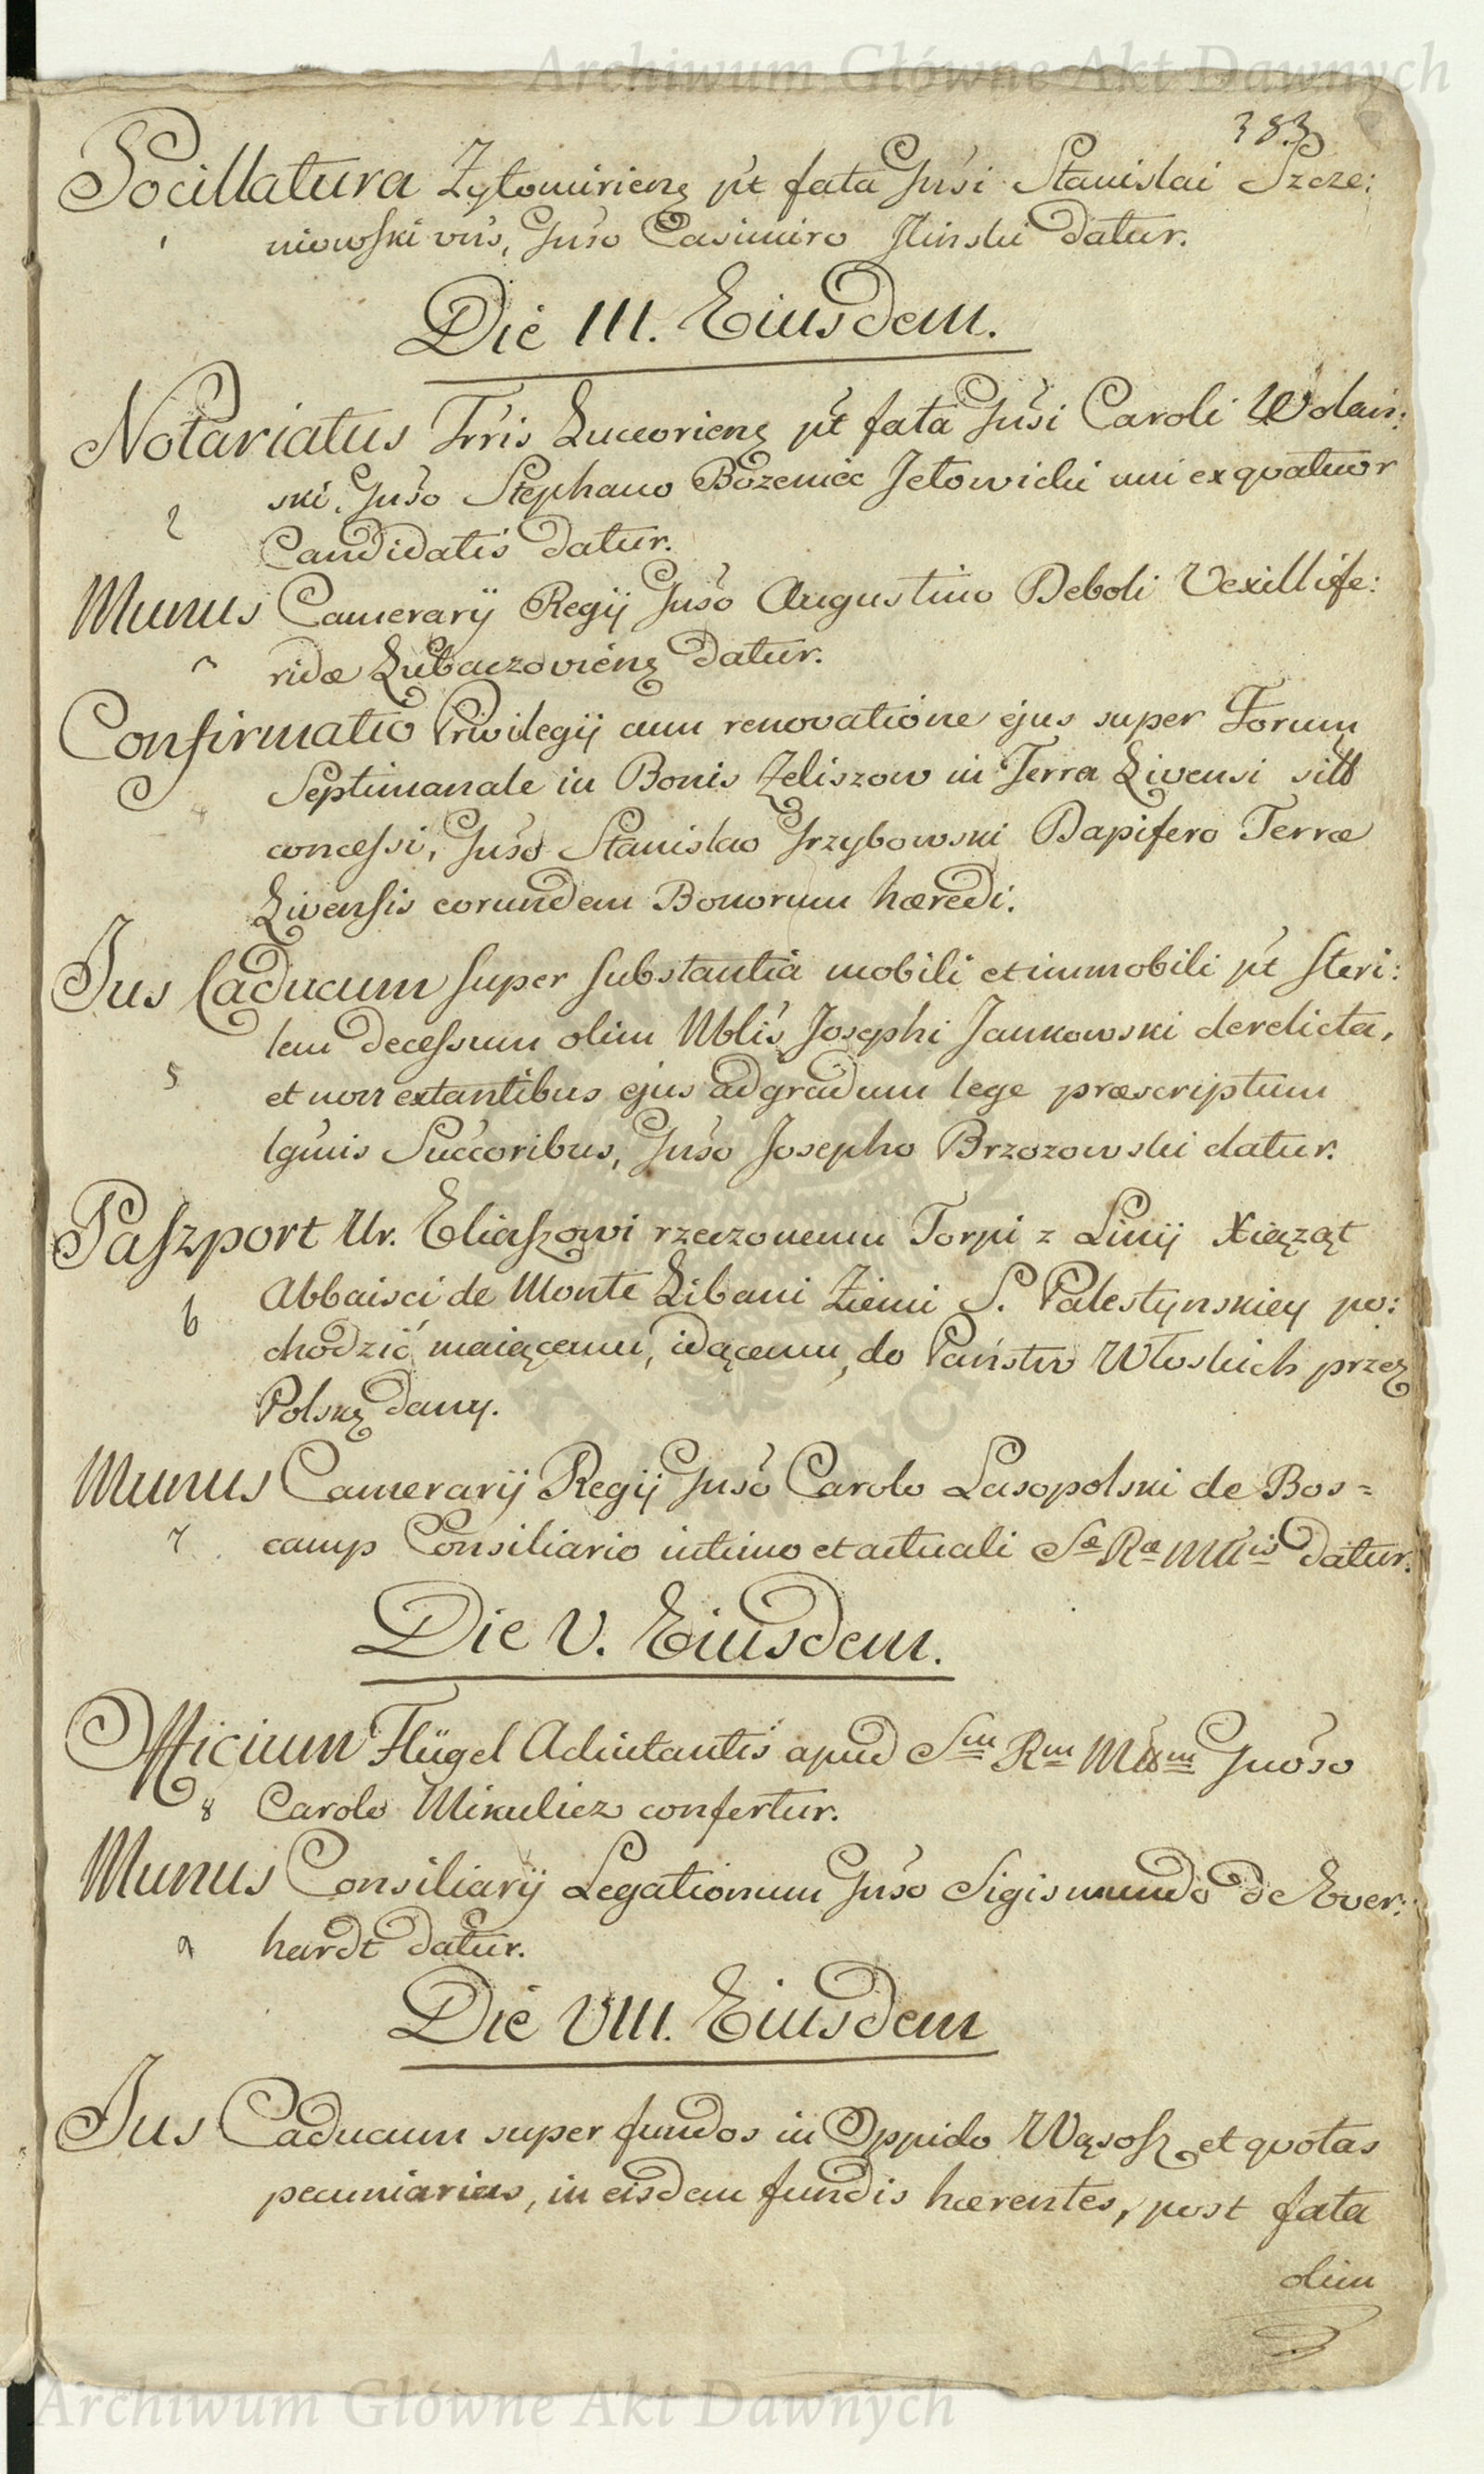 Archiwum Główne Akt Dawnych
383
Pocillatura Zytomirienę pt fata Gnsi Stanislai Szcze:
1 niowski vrs, Gnso Casimiro Ilinski datur.
Die III. Eiusdem.
Notariatus Trris Luceorienę pt fata Gnsi Caroli Wolan:
ski, Gnso Stephano Bozeniec Jełowicki uni ex qvatuor
2 Candidatis datur.
Munus Camerarij Regij Gnso Augustino Deboli Vexillife:
3 ridæ Lubaczovienę datur.
Confirmatio Privilegij cum renovatione ejus super Forum
4 Septimanale in Bonis Zeliszow in Terra Livensi sitt
concessi, Gnso Stanislao Grzybowski Dapifero Terræ
Livensis eorundem Bonorum hæredi.
Jus Caducum super substantia mobili et immobili pt steri:
lem decessum olim Nblis Josephi Jankowski derelicta,
5 et non extantibus ejus ad gradum lege præscriptum
lgmis Succoribus, Gnso Josepho Brzozowski datur.
Paszport Ur. Eliaszowi rzeczonemu Torpi z Linij Xiąząt
6 Abbaisci de Monte Libani Ziemi S. Palestynskiey po:
chodzić maiącemu, idącemu do Państw Włoskich przez
Polskę dany.
Munus Camerarij Regij Gnso Carolo Lasopolski de Bos=
7 camp Consiliario intimo et actuali Sæ Ræ Mttis datur.
Die V. Eiusdem.
Officium Flügel Adiutantis apud Sm Rm Mttm Gnoso
8 Carolo Mikulicz confertur.
Munus Consiliarij Legationum Gnso Sigismundo de Ever:
9 hardt datur.
Die VIII. Eiusdem
Jus Caducum super fundos in Oppido Wąsosz et qvotas
pecuniarias, in eisdem fundis hærentes, post fata
olim
Archiwum Główne Akt Dawnych